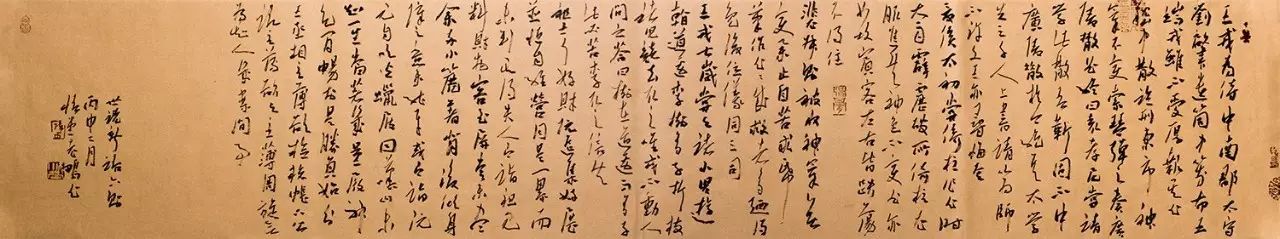 王戎為侍中南郡太守
劉肇遺筒中箋布五
端戎雖不受厚報其書
嵇中散臨刑東市神
氣不變索琴彈之奏廣
陵散曲終曰袁孝尼嘗請
學此散吾靳固不與
廣陵散於今絕矣太學
生三千人上書請以為師
不許文王亦尋悔焉
夏侯太初嘗倚柱作書時
大雨霹靂破所倚柱衣
服焦然神色不變書亦
如故賓客左右皆跌蕩
不得住
裴叔則被收神氣無
變舉止自若求紙
筆作書書成救者多乃得
免後位儀同三司
王戎七歲嘗與諸小兒遊
看道邊李樹多子折枝
諸兒競走取之唯戎不動人
問之答曰樹在道邊而多子
此必苦李取之信然
祖士少好財阮遙集好屐
並恆自經營同是一累而
未判其得失人有詣祖見
料財物客至屏當未盡
餘兩小簏著背後傾身
障之意未能平或有詣阮
見自吹火蠟屐因歎曰未
知一生當著幾量屐神
色閑暢於是勝負始分
王丞相主簿欲檢校帳下公
語主簿欲與主簿周旋無
為知人几案間事
世說新語六則
丙申二月